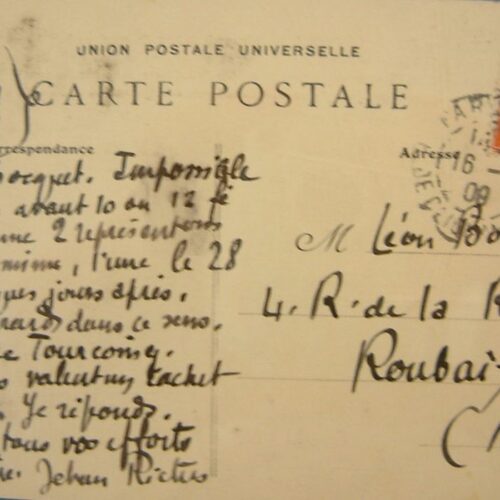 UNION POSTALE UNIVERSELLE
CARTE POSTALE
rrespondance
Adresse
ocquet. Impossible
avant 10 ou 12 fé
une 2 représentons
mime, l'une le 28
ques jours après.
dans ce sens.
e Tourcoing.
valentin cachet
Je réponds.
tous vos efforts
Jehan Rictus
M Léon Bo
4. R. de la R
Roubai
16
09